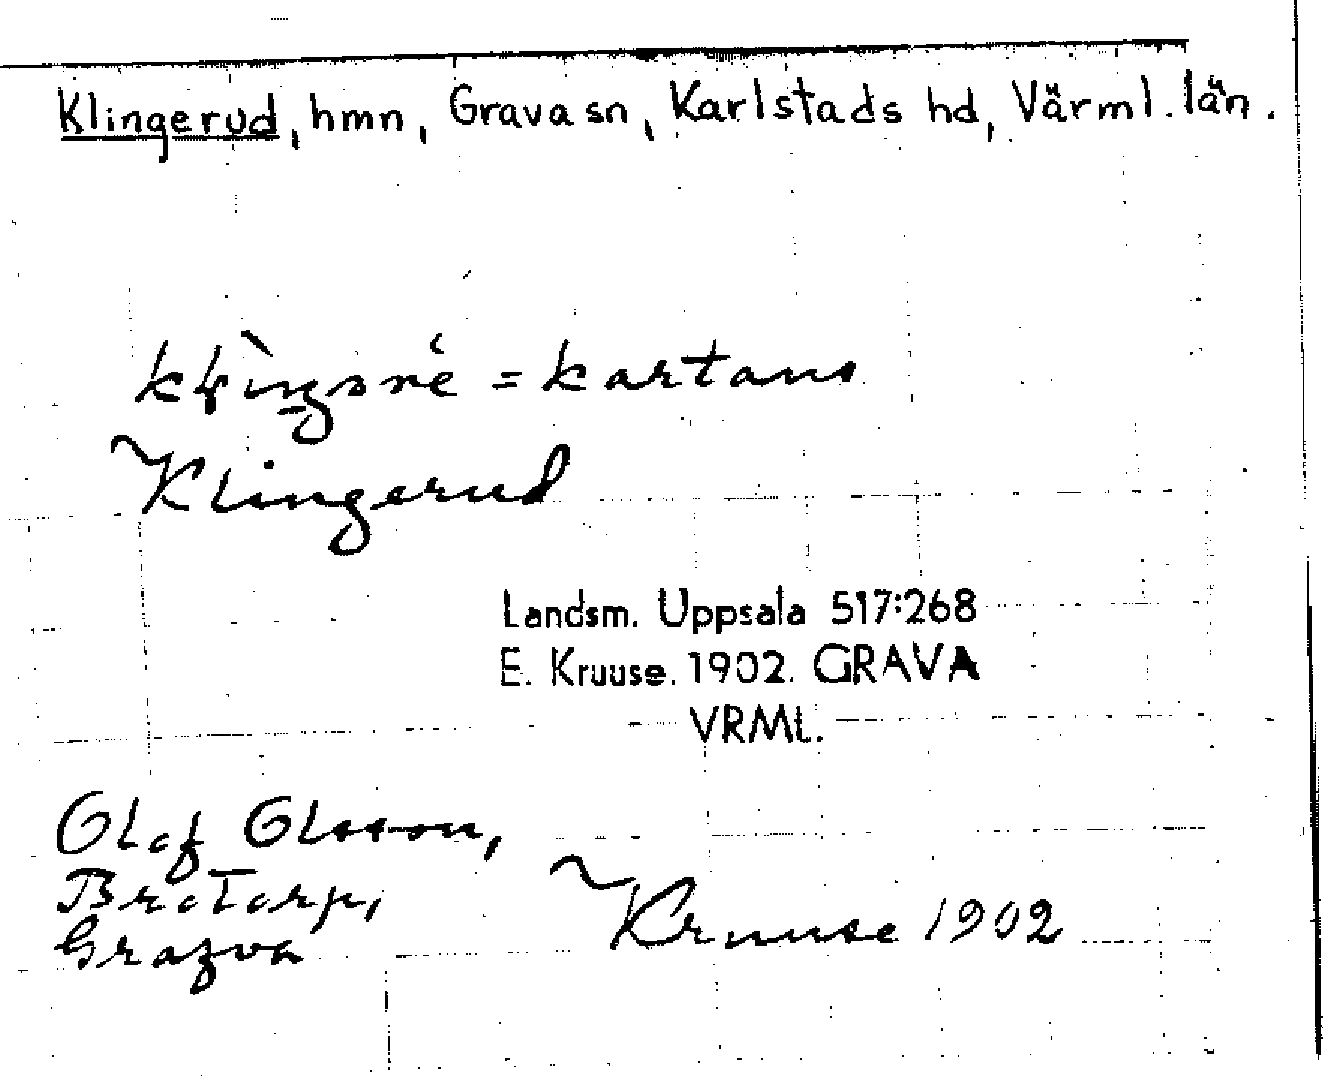 Klingerud, hmn, Grava sn, Karlstads hd, Värml. län.
= kartans
Klingerud
Landsm. Uppsala 517:268
E. Kruuse. 1902. GRAVA
VRML.
Olof Olsson,
Brotorp,
Grafva
Kruuse 1902